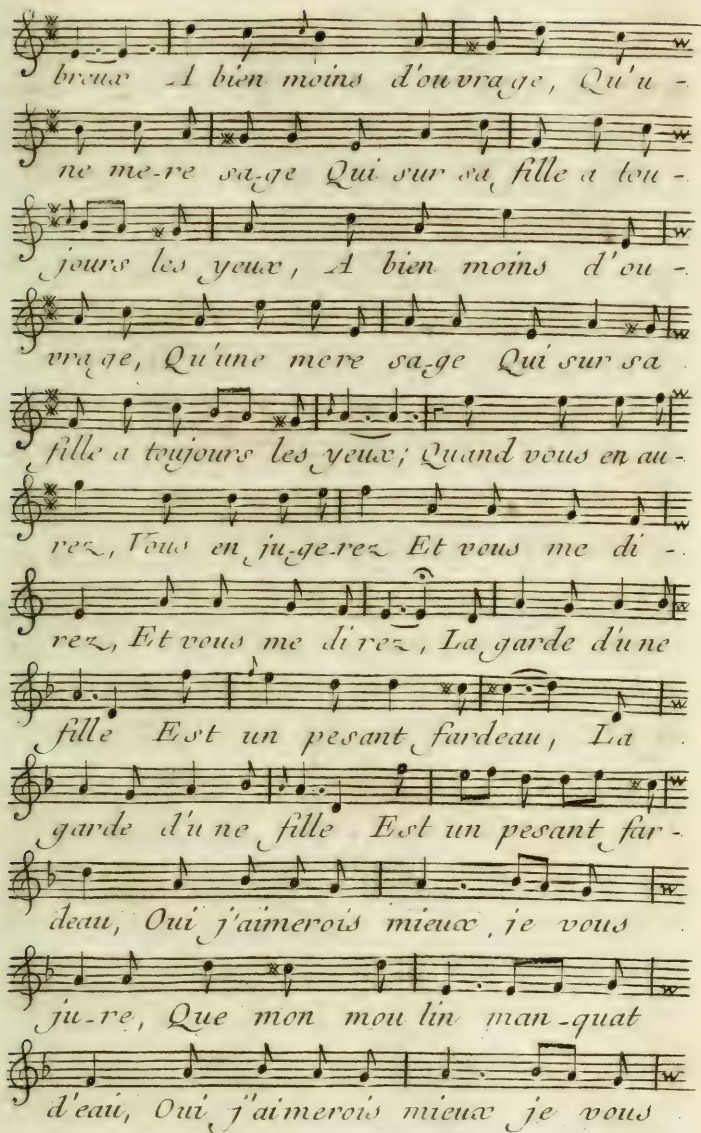 breux A bien moins d'ouvrage, Qu'u-
ne me-re sa-ge Qui sur sa fille a tou-
jours les yeux, A bien moins d'ou-
vrage, Qu'une mere sa-ge Qui sur sa
fille a toujours les yeux; Quand vous en au-
rez, Vous en ju-ge-rez Et vous me di-
rez, Et vous me direz, La garde d'une
fille Est un pesant fardeau, La
garde d'une fille Est un pesant far-
deau, Oui j'aimerois mieux, je vous
ju-re, Que mon moulin man-quat
d'eau, Oui j'aimerois mieux je vous